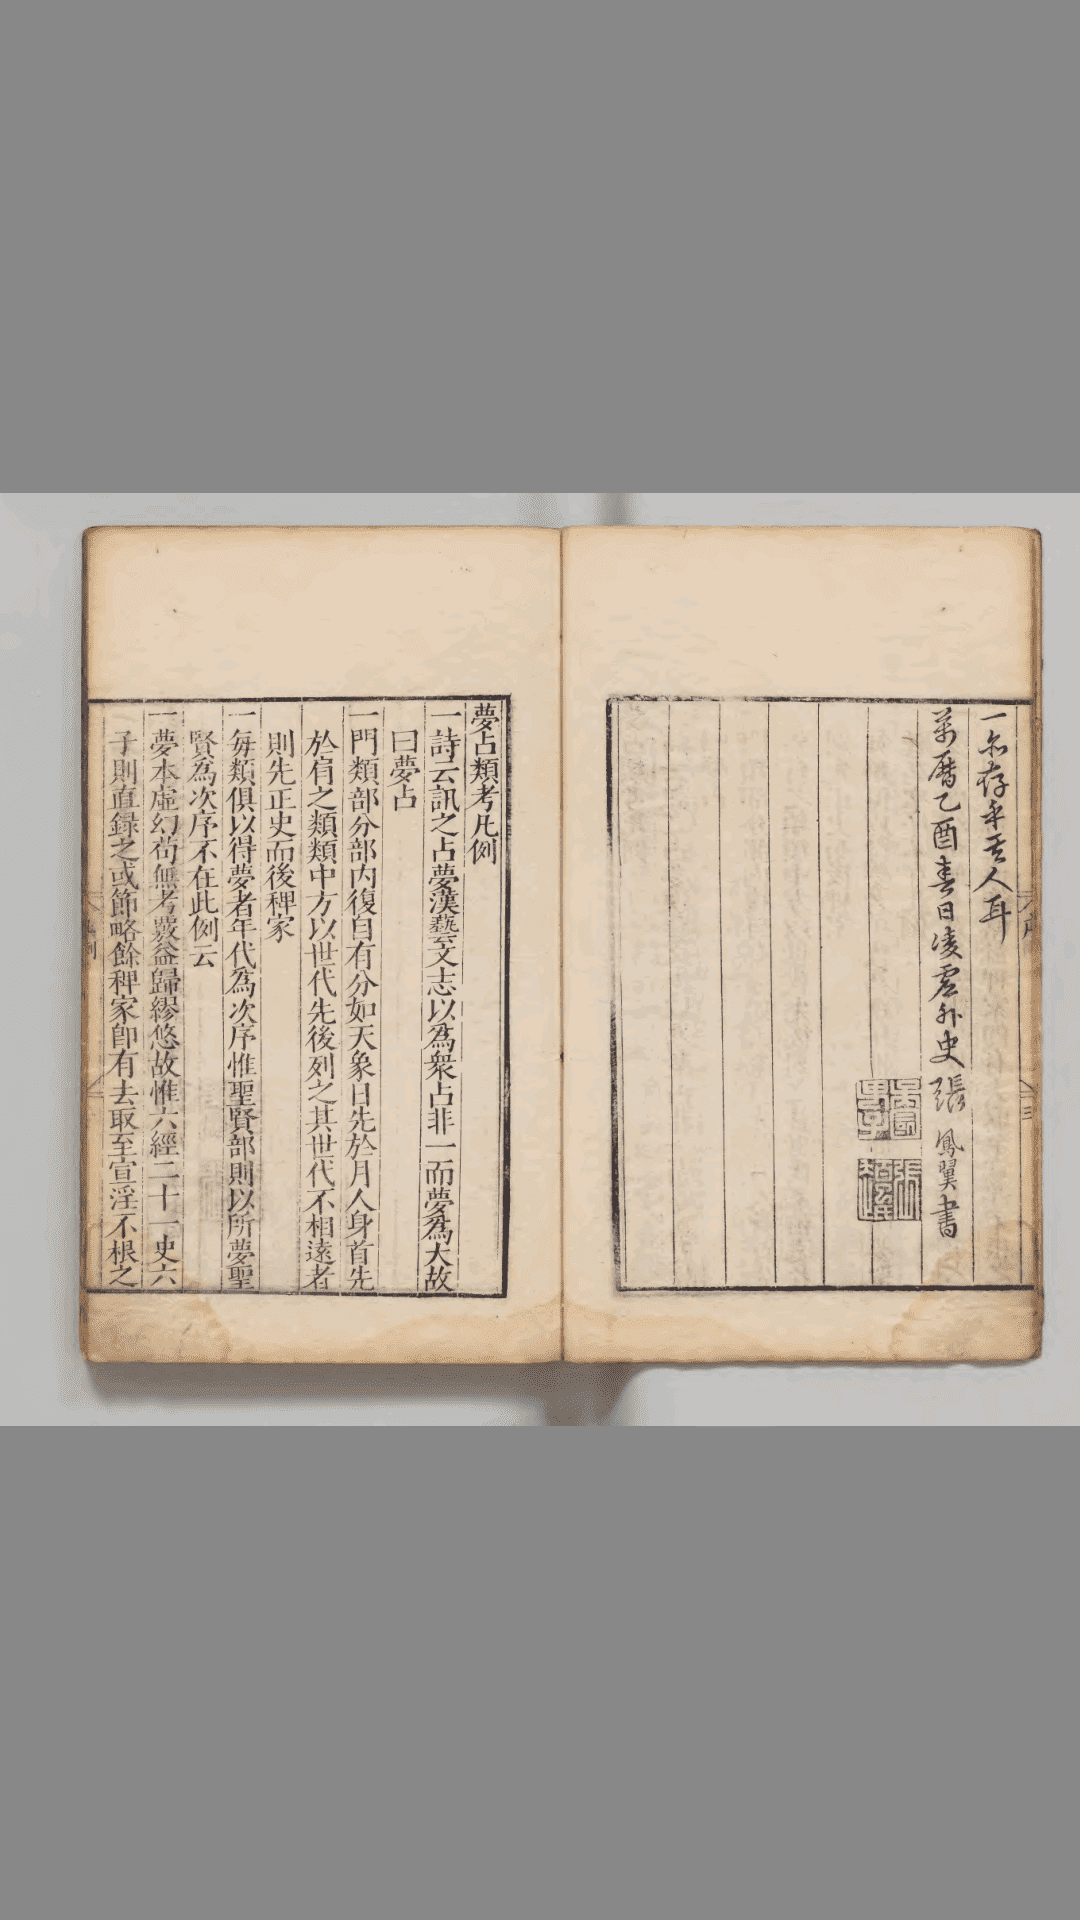 一亦存乎其人耳
萬曆乙酉春日凌虛外史張鳳翼書
夢占類考凡例
一詩云訊之占夢漢藝文志以爲衆占非一而夢爲大故
曰夢占
一門類部分部內復自有分如天象日先於月人身首先
於肩之類類中方以世代先後列之其世代不相遠者
則先正史而後稗家
一每類俱以得夢者年代爲次序惟聖賢部則以所夢聖
賢為次序不在此例云
一夢本虛幻苟無考覈益歸繆悠故惟六經二十一史六
子則直録之或節略餘稗家卽有去取至宣淫不根之